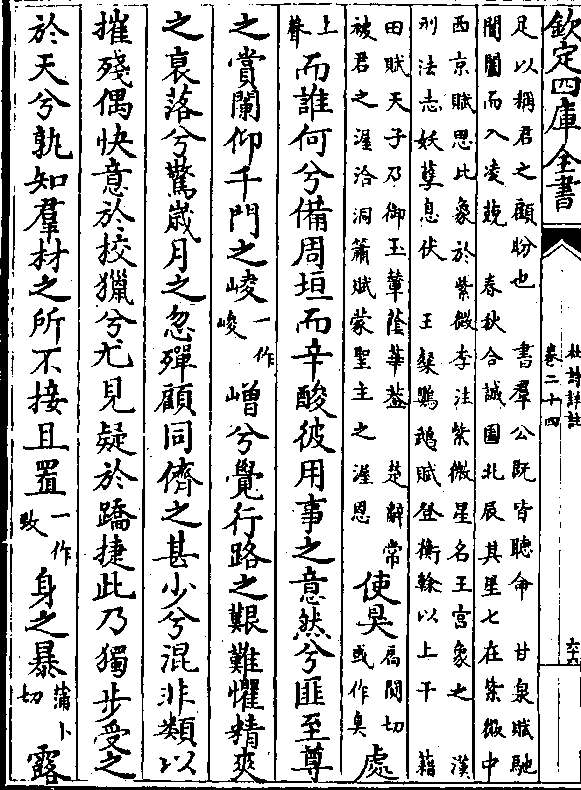 欽定四庫全書
杜詩詳註
卷二十四
足以稱君之顧盼也　書羣公既皆聽命　甘泉賦馳
閶闔而入凌兢　春秋合誠圖北辰其星七在紫微中
西京賦思比象於紫微李注紫微星名王宮象之　漢
刑法志妖孽息伏　王粲鶡賦登衡幹以上干　籍
田賦天子乃御玉輦蔭華蓋　楚辭常
被君之渥洽洞簫賦蒙聖主之渥恩
使狊局閴切或作臭處
上聲而誰何兮備周垣而辛酸彼用事之意然兮匪至尊
之賞闌仰千門之崚一作峻嶒兮覺行路之艱難懼精爽
之衰落兮驚歲月之忽殫顧同儕之甚少兮混非類以
摧殘偶快意於挍獵兮尤見疑於蹻捷此乃獨步受之
於天兮孰知羣材之所不接且置一作致身之暴蒲卜切露